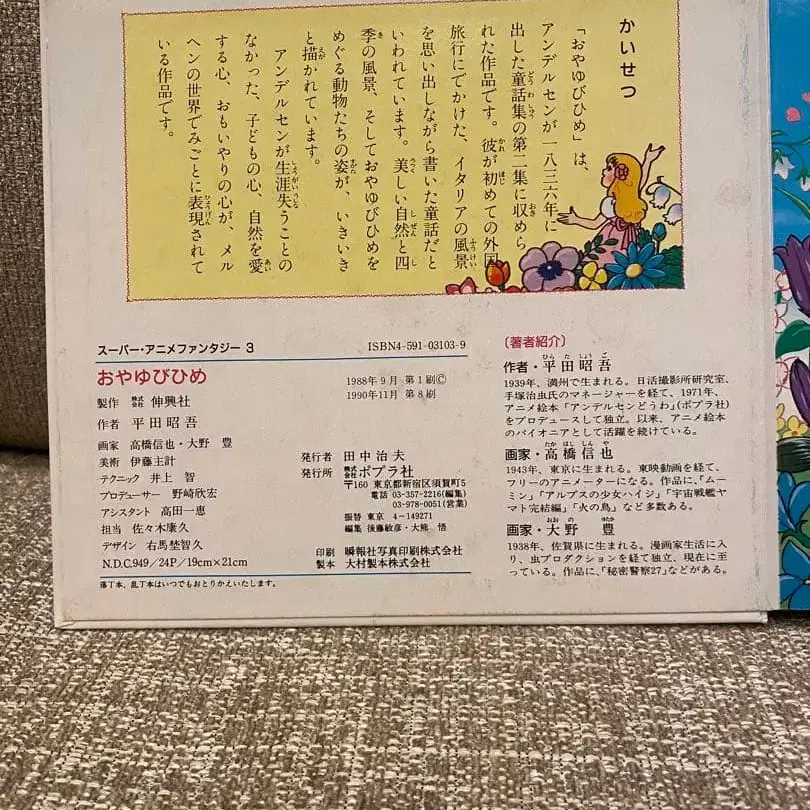 かいせつ
「おやゆびひめ」は、
アンデルセンが一八三六年に
出した童話集の第二集に収めら
れた作品です。彼が初めての外国
旅行にでかけた、イタリアの風景
を思い出しながら書いた童話だと
いわれています。美しい自然と四
季の風景、そしておやゆびひめを
めぐる動物たちの姿が、いきいき
と描かれています。
アンデルセンが生涯失うことの
なかった、子どもの心、自然を愛
する心、おもいやりの心が、メル
ヘンの世界でみごとに表現されて
いる作品です。
スーパー・アニメファンタジー 3
おやゆびひめ
製作 株式会社 伸興社
作者 平田昭吾
画家 高橋信也・大野 豊
美術 伊藤主計
テクニック 井上 智
プロデューサー 野崎欣宏
アシスタント 高田一恵
担当 佐々木康久
デザイン 右馬埜智久
N.D.C.949/24P/19cm×21cm
落丁本、乱丁本はいつでもおとりかえいたします。
ISBN4-591-03103-9
1988年9月 第1刷©
1990年11月 第8刷
発行者 田中治夫
発行所 株式会社ポプラ社
〒160 東京都新宿区須賀町5
電話 03-357-2216(編集)
03-978-0051(営業)
振替 東京 4-149271
編集 後藤敏彦・大熊 悟
印刷 瞬報社写真印刷株式会社
製本 大村製本株式会社
〔著者紹介〕
作者・平田昭吾
1939年、満州で生まれる。日活撮影所研究室、
手塚治虫氏のマネージャーを経て、1971年、
アニメ絵本「アンデルセンどうわ」(ポプラ社)
をプロデュースして独立。以来、アニメ絵本
のパイオニアとして活躍を続けている。
画家・高橋信也
1943年、東京に生まれる。東映動画を経て、
フリーのアニメーターになる。作品に、「ムー
ミン」「アルプスの少女ハイジ」「宇宙戦艦ヤ
マト完結編」「火の鳥」など多数ある。
画家・大野 豊
1938年、佐賀県に生まれる。漫画家生活に入
り、虫プロダクションを経て独立、現在に至
っている。作品に、「秘密警察27」などがある。